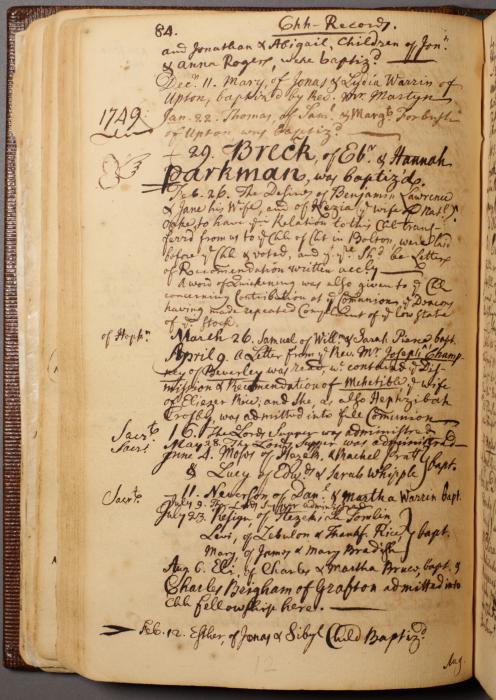 84. Chh-Records.
and Jonathan & Abigail, Children of Jon.n
& Anna Rogers, were baptizd
Dec.r 11. Mary, of Jonas & Lydia Warrin of
Upton, baptized by Rev. Mr. Martyn
1749. Jan. 22. Thomas, of Sam.l & Marg.t Forbush
of Upton was baptiz'd
— 29. Breck, of Eb.r & Hannah
Parkman, was baptiz'd.
Feb. 26. The Desires of Benjamin Lawrence
& Jane his Wife, and of Kezia ye wife of Nat.l
to have yr Relation to this Chh trans-
ferr'd from us to ye Chh of Cht in Bolton, were laid
before ye Chh & voted, and yt yr Sh'd be Letters
of Recomendation written accly
A word of Quickening was also given to ye Chh
concerning Contribution at ye Comunions, ye Deacons
having made repeated Complaint of ye low State
of ye Stock.
of Hephn. March 26. Samuel of Will.m & Sarah Pierce bapt.
April 9. A Letter from ye Rev. Mr. Joseph Champ-
ney of Beverley was read, wc contained ye Dis-
mission & Recomendation of Mehetible ye wife
of Eliezer Rice, and she, as also Hephzibah
Crosby, was admitted into full Comunion
Sacrt. 16. The Lords Supper was administered
Sacrt. May 28. The Lords Supper was administered
June 4. Moses of Hezek. & Rachel Pratt } bapt.
& Lucy of Edw. & Jerub Whipple
Sacrt. — 11. Neverson of Dan.l & Martha Warren bapt.
July 9. The Lords Supper administered
July 23. Resign of Hezekiah
Levi, of Zebulon & Thankf. Rice } bapt.
Mary of James & Mary Bradish
Aug 6. Eli, of Charles & Martha Bruce, bapt. &
Charles Brigham of Grafton admitted into
Chh fellowship here.
Feb. 12. Esther, of Jonas & Sibyl Child Baptizd
Aug
12